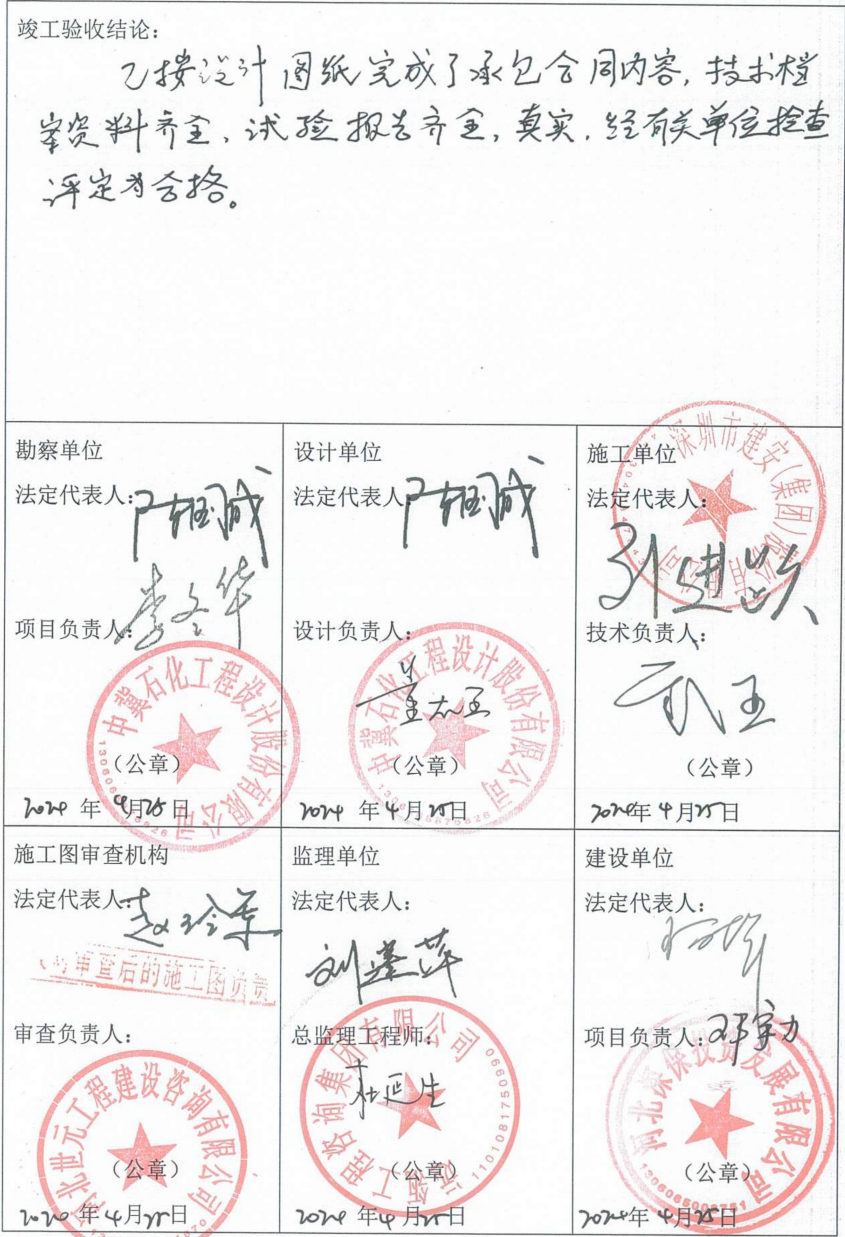 竣工验收结论:
已按设计图纸完成了承包合同内容,技术档
案资料齐全,试验报告齐全,真实,经有关单位检查
评定为合格。
勘察单位
法定代表人:
项目负责人:
李冬华
中冀石化工程设计股份有限公司
(公章)
2024年4月25日
设计单位
法定代表人:
设计负责人:
董志玉
中冀石化工程设计股份有限公司
(公章)
2024年4月25日
施工单位
深圳市建安(集团)股份有限公司
法定代表人:
技术负责人:
(公章)
2024年4月25日
施工图审查机构
法定代表人:
对审查后的施工图负责
审查负责人:
河北世元工程建设咨询有限公司
(公章)
年4月25日
监理单位
法定代表人:
总监理工程师:
杜延生
工程咨询集团有限公司
11010817505990
(公章)
2024年4月25日
建设单位
法定代表人:
项目负责人:
邓宇力
河北深保投资发展有限公司
(公章)
2024年4月25日